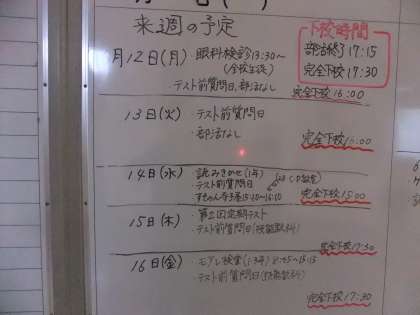 来週の予定
下校時間
部活終了 17:15
完全下校 17:30
月12日(月) 眼科検診 13:30〜
(全校生徒)
テスト前質問日、部活なし
完全下校 16:00
13日(火) テスト前質問日
・部活なし
完全下校
14日(水) 読みきかせ(1年)
テスト前質問日
15:10〜16:10
完全下校 15:00
15日(木) 第2回定期テスト
・テスト前質問日
完全下校 17:30
16日(金)
・テスト前質問日
完全下校 17:30